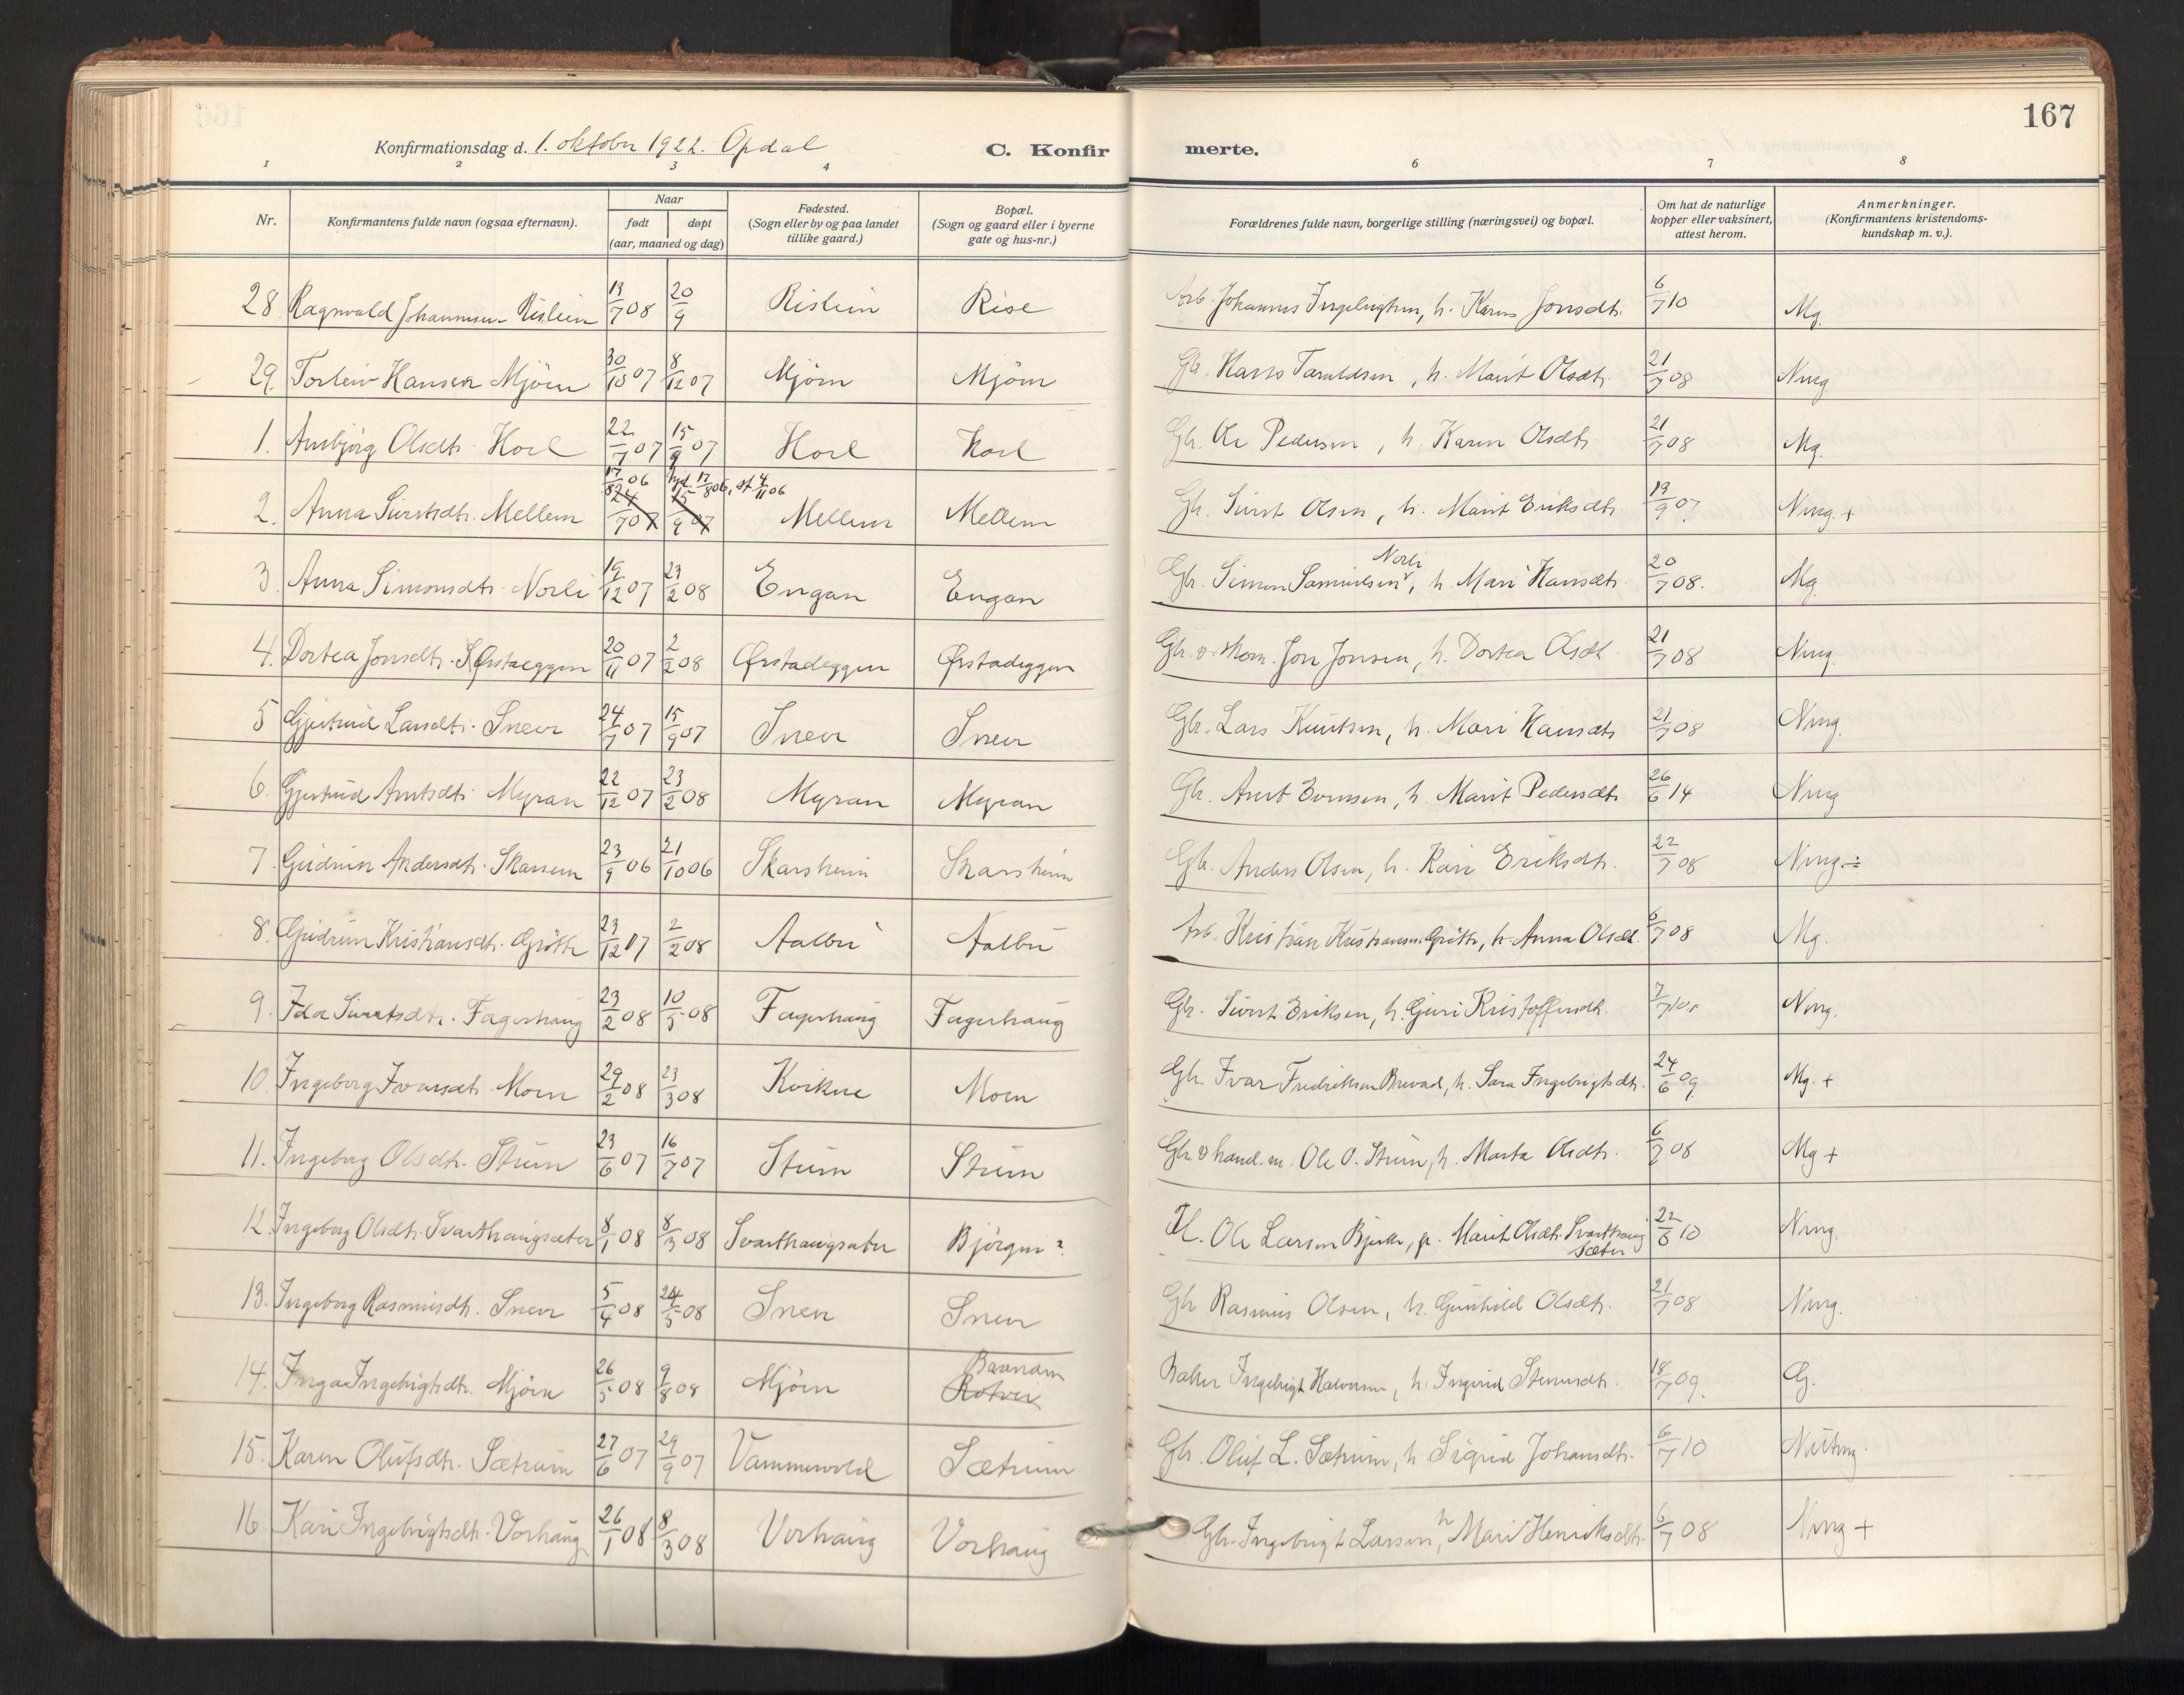 167
Konfirmationsdag d. 1. oktober 1922. Opdal C. Konfirmerte.
1 2 3 4 6 7 8
Nr. Konfirmantens fulde navn (ogsaa efternavn). Naar født døpt (aar, maaned og dag) Fødested. (Sogn eller by og paa landet tillike gaard.) Bopæl. (Sogn og gaard eller i byerne gate og hus-nr.) Forældrenes fulde navn, borgerlige stilling (næringsvei) og bopæl. Om hat de naturlige kopper eller vaksinert, attest herom. Anmerkninger. (Konfirmantens kristendomskundskap m. v.).
28. Ragnvald Johannesen Rislien 19/7 08 20/9 Rislien Rise Arb. Johannes Ingebrigtsen, h. Karen Jonsdtr. 6/7 10 Mg.
29. Torleiv Hansen Mjöen 30/10 07 8/12 07 Mjöen Mjöen Gbr. Hans Taraldsen, h. Marit Olsdtr. 21/7 08 Nmg
1. Arnbjörg Olsdtr. Hoel 22/7 07 15/9 07 Hoel Hoel Gbr. Ole Pedersen, h. Karen Olsdtr. 21/7 08 Mg.
17/8 06 hjd. 17/8 06, st. 4/11 06
2. Anna Sivertsdtr. Mellem 24/7 07 15/9 07 Mellem Mellem Gbr. Sivert Olsen, h. Marit Eriksdtr. 19/9 07. Nmg. +
3. Anna Simonsdtr. Norli 19/12 07 23/2 08 Engan Engan Gbr. Simon Samuelsen Norli, h. Mari Hansdtr. 20/7 08. Mg.
4. Dortea Jonsdtr. S. Ørstaeggen 20/11 07 2/2 08 Ørstadeggen Ørstadeggen Gbr. v. skom. Jon Jonsen, h. Dortea Olsdtr. 21/7 08 Nmg.
5 Gjertrud Larsdtr. Snever 24/7 07 15/9 07 Snever Snever Gbr. Lars Knutsen, h. Mari Hansdtr. 21/7 08 Nmg.
6. Gjertrud Arntsdtr. Myran 22/12 07 23/2 08 Myran Myran Gbr. Arnt Evensen, h. Marit Pedersdtr. 26/6 14 Nmg
7. Gudrun Andersdtr. Skarsem 23/9 06 21/10 06 Skarsheim Skarsheim Gbr. Anders Olsen, h. Kari Eriksdtr. 22/7 08 Nmg. ÷
8. Gudrun Kristiansdtr. Grötte 23/12 07 2/2 08 Aalbu Aalbu Arb. Kristian Kristiansen Grötte, h. Anna Olsdtr. 6/7 08 Mg.
9. Ida Sivertsdtr. Fagerhaug 23/2 08 10/5 08 Fagerhaug Fagerhaug Gbr. Sivert Eriksen, h. Guri Kristoffersdtr. 7/7 Nmg.
10. Ingeborg Ivarsdtr. Moen 29/2 08 23/3 08 Kvikne Moen Gbr. Ivar Fredriksen Brevad, h. Sara Ingebrigtsdtr. 24/6 09. Mg. +
11. Ingeborg Olsdtr. Stuen 23/6 07 16/7 07 Stuen Stuen Gbr. v. hand.m. Ole O. Stuen, h. Marta Olsdtr. 6/7 08 Mg +
12. Ingeborg Olsdtr. Svarthaugsæter 8/1 08 8/3 08 Svarthaugsæter Björgen? Ole Larsen Bjerke, p. Marit Olsdtr. Svarthaugsæter 22/6 10 Nmg.
13. Ingeborg Rasmusdtr. Snever 5/4 08 24/5 08 Snever Snever Gbr Rasmus Olsen, h. Gunhild Olsdtr. 21/7 08 Nmg.
14. Inga Ingebrigtsdtr. Mjöen 26/5 08 9/8 08 Mjöen Rotvei Baker Ingebrigt Halvorsen, h. Ingrid Steensdtr. 18/7 09. G.
15. Karen Olufsdtr. Sætrum 27/6 07 29/9 07 Vammervold Sætrum Gbr. Oluf L. Sætrum, h Sigrid Johansdtr. 6/7 10
16 Kari Ingebrigtsdtr. Vorhaug 26/1 08 8/3 08 Vorhaug Vorhaug Gbr. Ingebrigt Larsen, h Mari Henriksdtr. 6/7 08 Nmg +